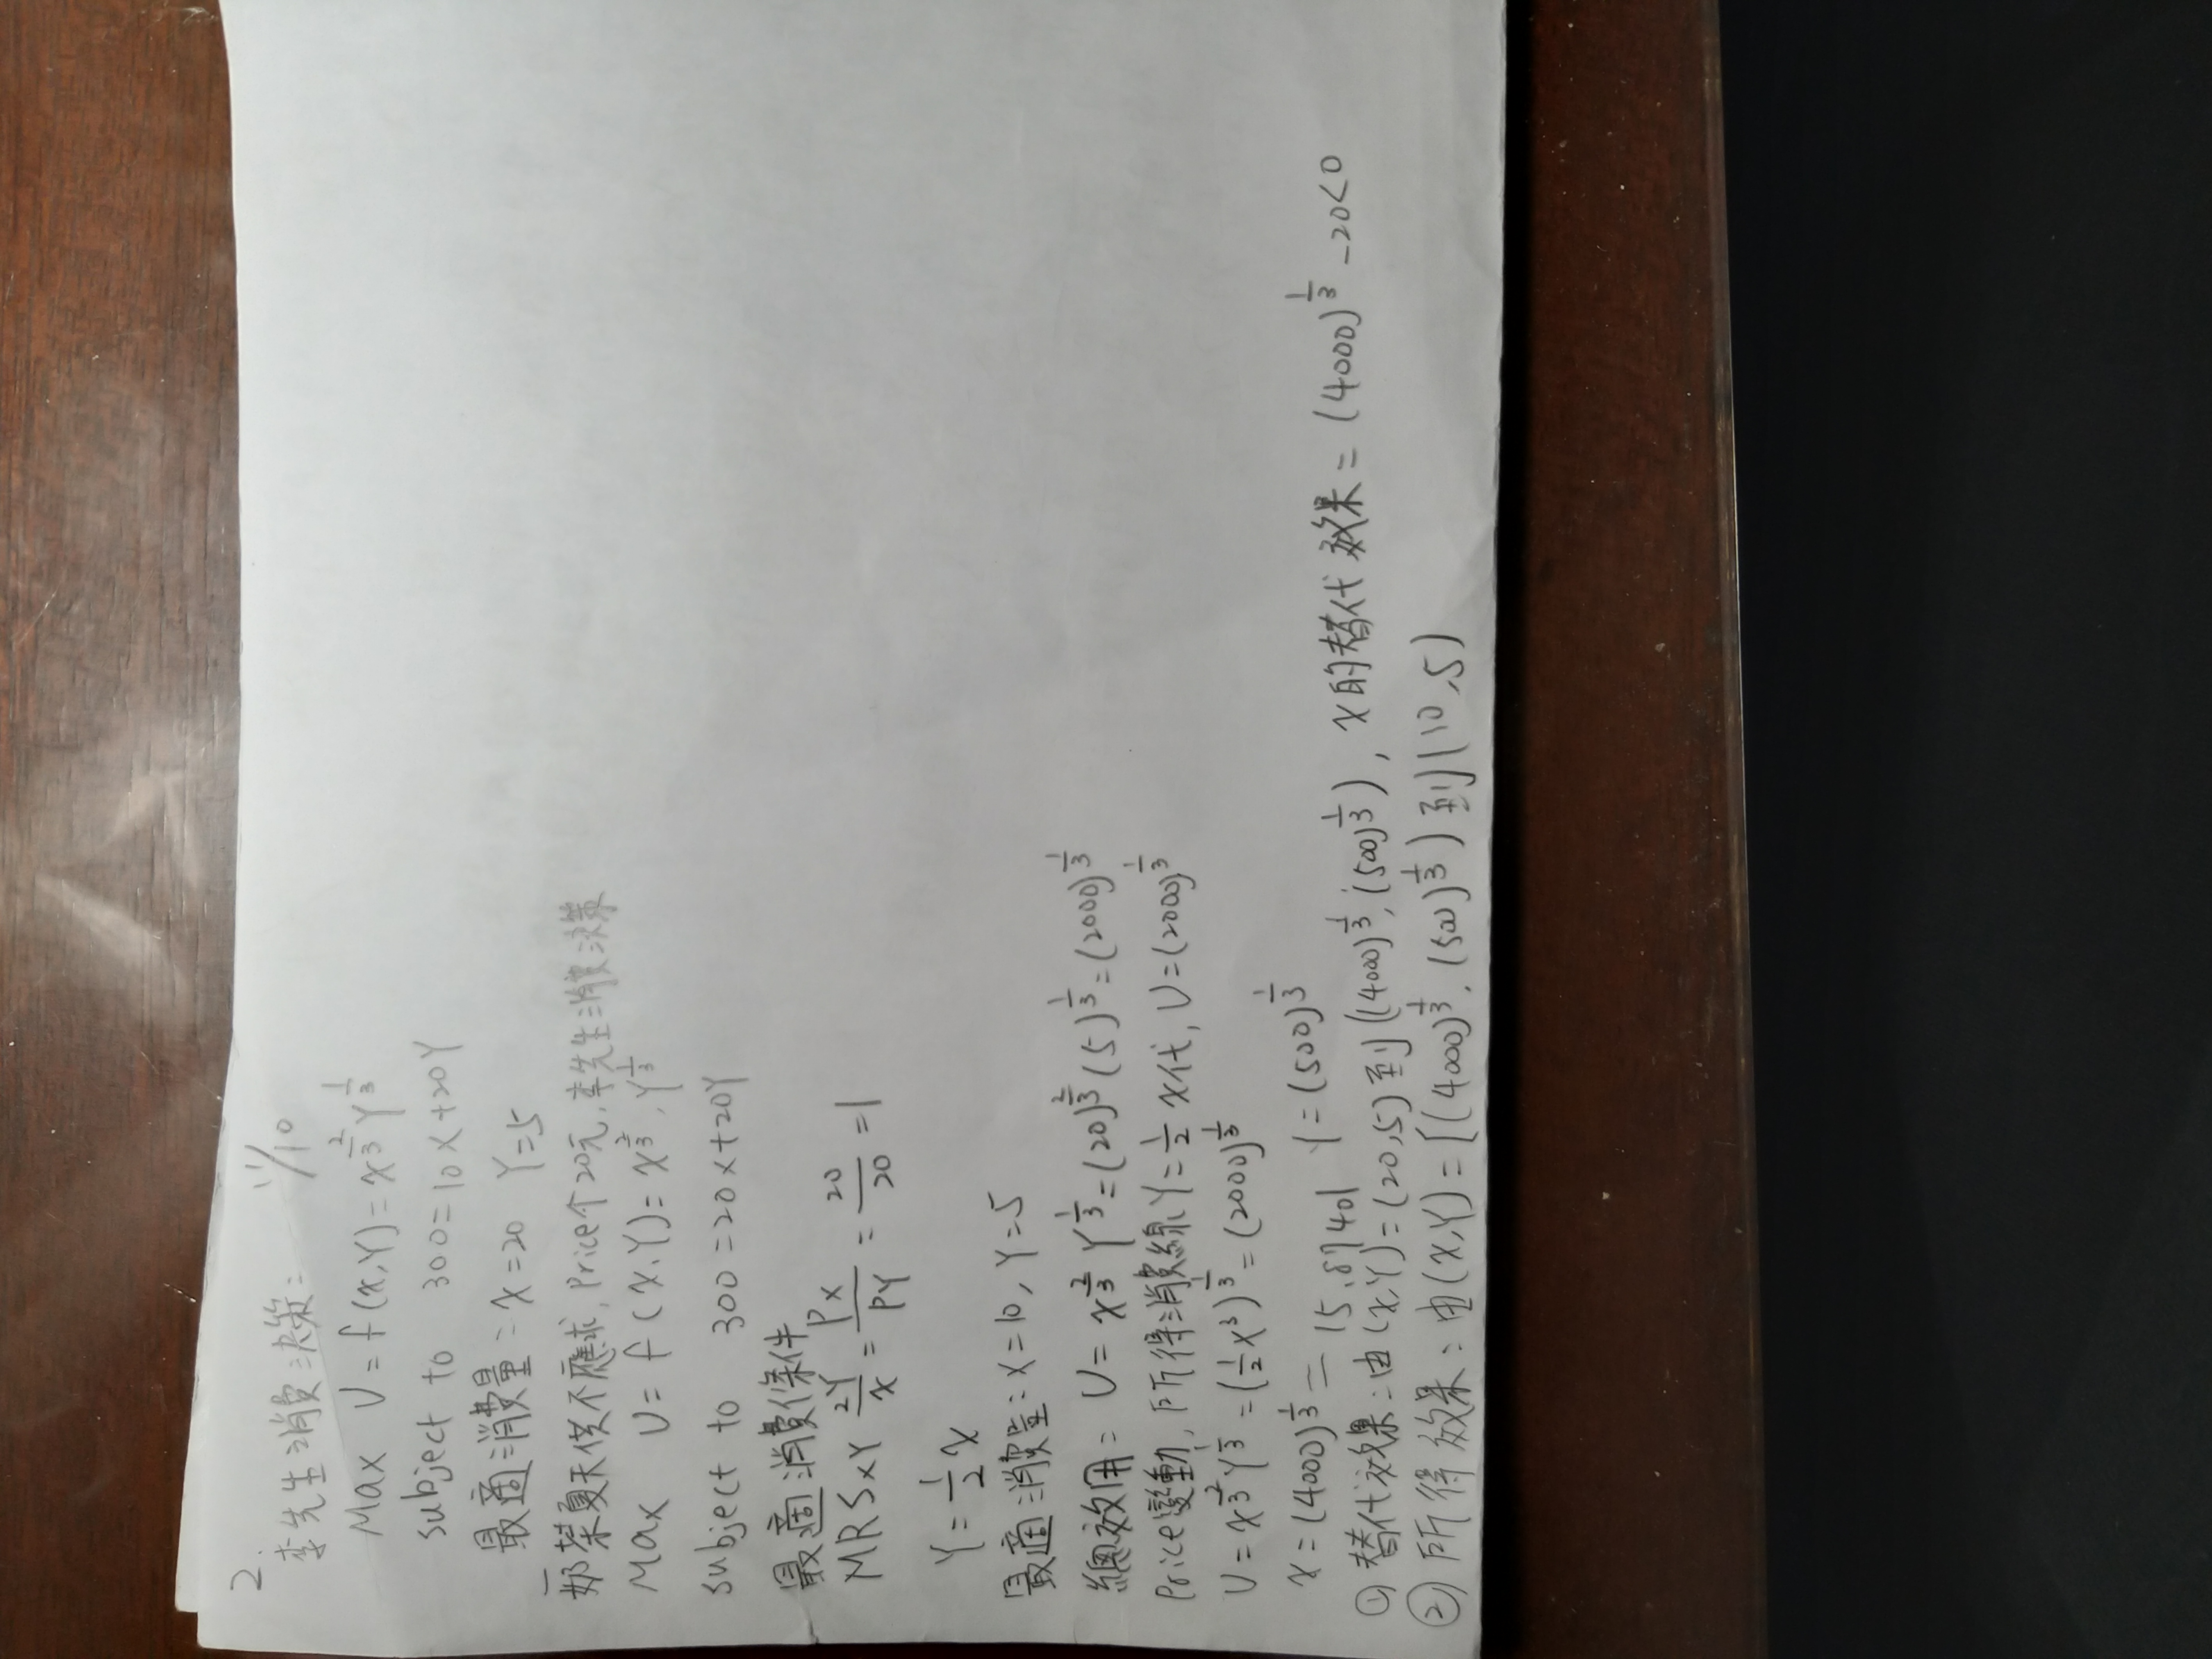 2.
李先生消費決策: 11/10
Max U = f(x,Y) = x^{\frac{2}{3}} Y^{\frac{1}{3}}
subject to 300 = 10X+20Y
最適消費量: x=20 Y=5
奶茶夏天供不應求, Price↑20元, 李先生消費決策
Max U = f(x,Y) = x^{\frac{2}{3}}, Y^{\frac{1}{3}}
subject to 300 = 20x+20Y
最適消費條件
MRSxY \frac{2Y}{x} = \frac{Px}{PY} = \frac{20}{20} = 1
Y = \frac{1}{2} x
最適消費量: x=10, Y=5
總效用: U = x^{\frac{2}{3}} Y^{\frac{1}{3}} = (20)^{\frac{2}{3}} (5)^{\frac{1}{3}} = (2000)^{\frac{1}{3}}
Price變動, 所得消費線 Y = \frac{1}{2} x代, U = (2000)^{\frac{1}{3}}
U = x^{\frac{2}{3}} Y^{\frac{1}{3}} = (\frac{1}{2} x^3)^{\frac{1}{3}} = (2000)^{\frac{1}{3}}
x = (4000)^{\frac{1}{3}} = 15.87401 Y = (500)^{\frac{1}{3}}
① 替代效果: 由(x,Y) = (20,5) 到 ((4000)^{\frac{1}{3}}, (500)^{\frac{1}{3}}), x的替代效果 = (4000)^{\frac{1}{3}} -20<0
② 所得效果: 由(x,Y) = [(4000)^{\frac{1}{3}}, (500)^{\frac{1}{3}}) 到(10,5)